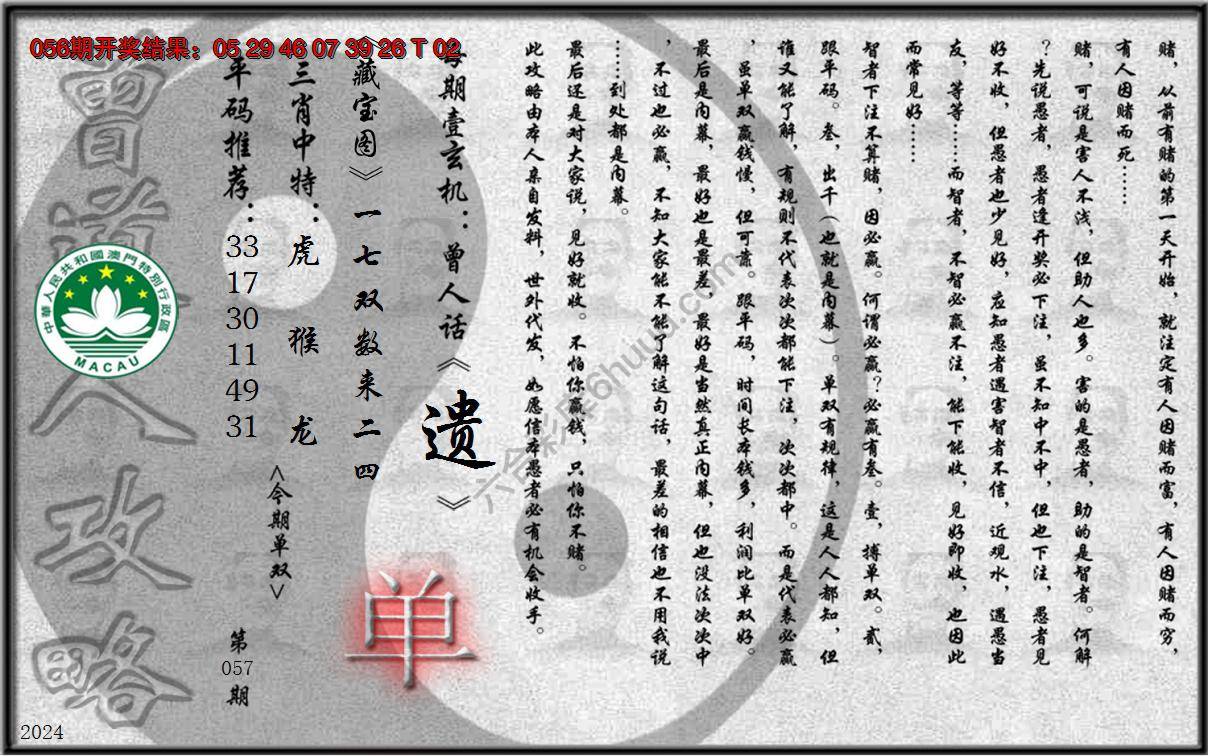 056期开奖结果：05 29 46 07 39 26 T 02
赌，从前有赌的第一天开始，就注定有人因赌而富，有人因赌而穷，
有人因赌而死……
赌，可说是害人不浅，但助人也多。害的是愚者，助的是智者。何解
？先说愚者，愚者逢开奖必下注，虽不知中不中，但也下注，愚者见
好不收，但愚者也少见好，应知愚者遇害智者不信，近观水，遇愚当
友，等等……而智者，不智必赢不注，能下能收，见好即收，也因此
而常见好……
智者下注不算赌，因必赢。何谓必赢？必赢有叁。壹，搏单双。贰，
跟平码。叁，出千（也就是内幕）。单双有规律，这是人人都知，但
谁又能了解，有规则不代表次次都能下注，次次都中。而是代表必赢
，虽单双赢钱慢，但可靠。跟平码，时间长本钱多，利润比单双好。
最后是内幕，最好也是最差，最好是当然真正内幕，但也没法次次中
，不过也必赢，不知大家能不能了解这句话，最差的相信也不用我说
……到处都是内幕。
最后还是对大家说，见好就收。不怕你赢钱，只怕你不赌。
此攻略由本人亲自发料，世外代发，如愿信本愚者必有机会收手。
每期壹玄机：曾人话《遗》
《藏宝图》一七双数来二四
三肖中特：虎 猴 龙
平码推荐：33 17 30 11 49 31
<今期单双>
单
第057期
曾道人攻略
中華人民共和國澳門特別行政區
MACAU
六合彩库6huuu.com
2024